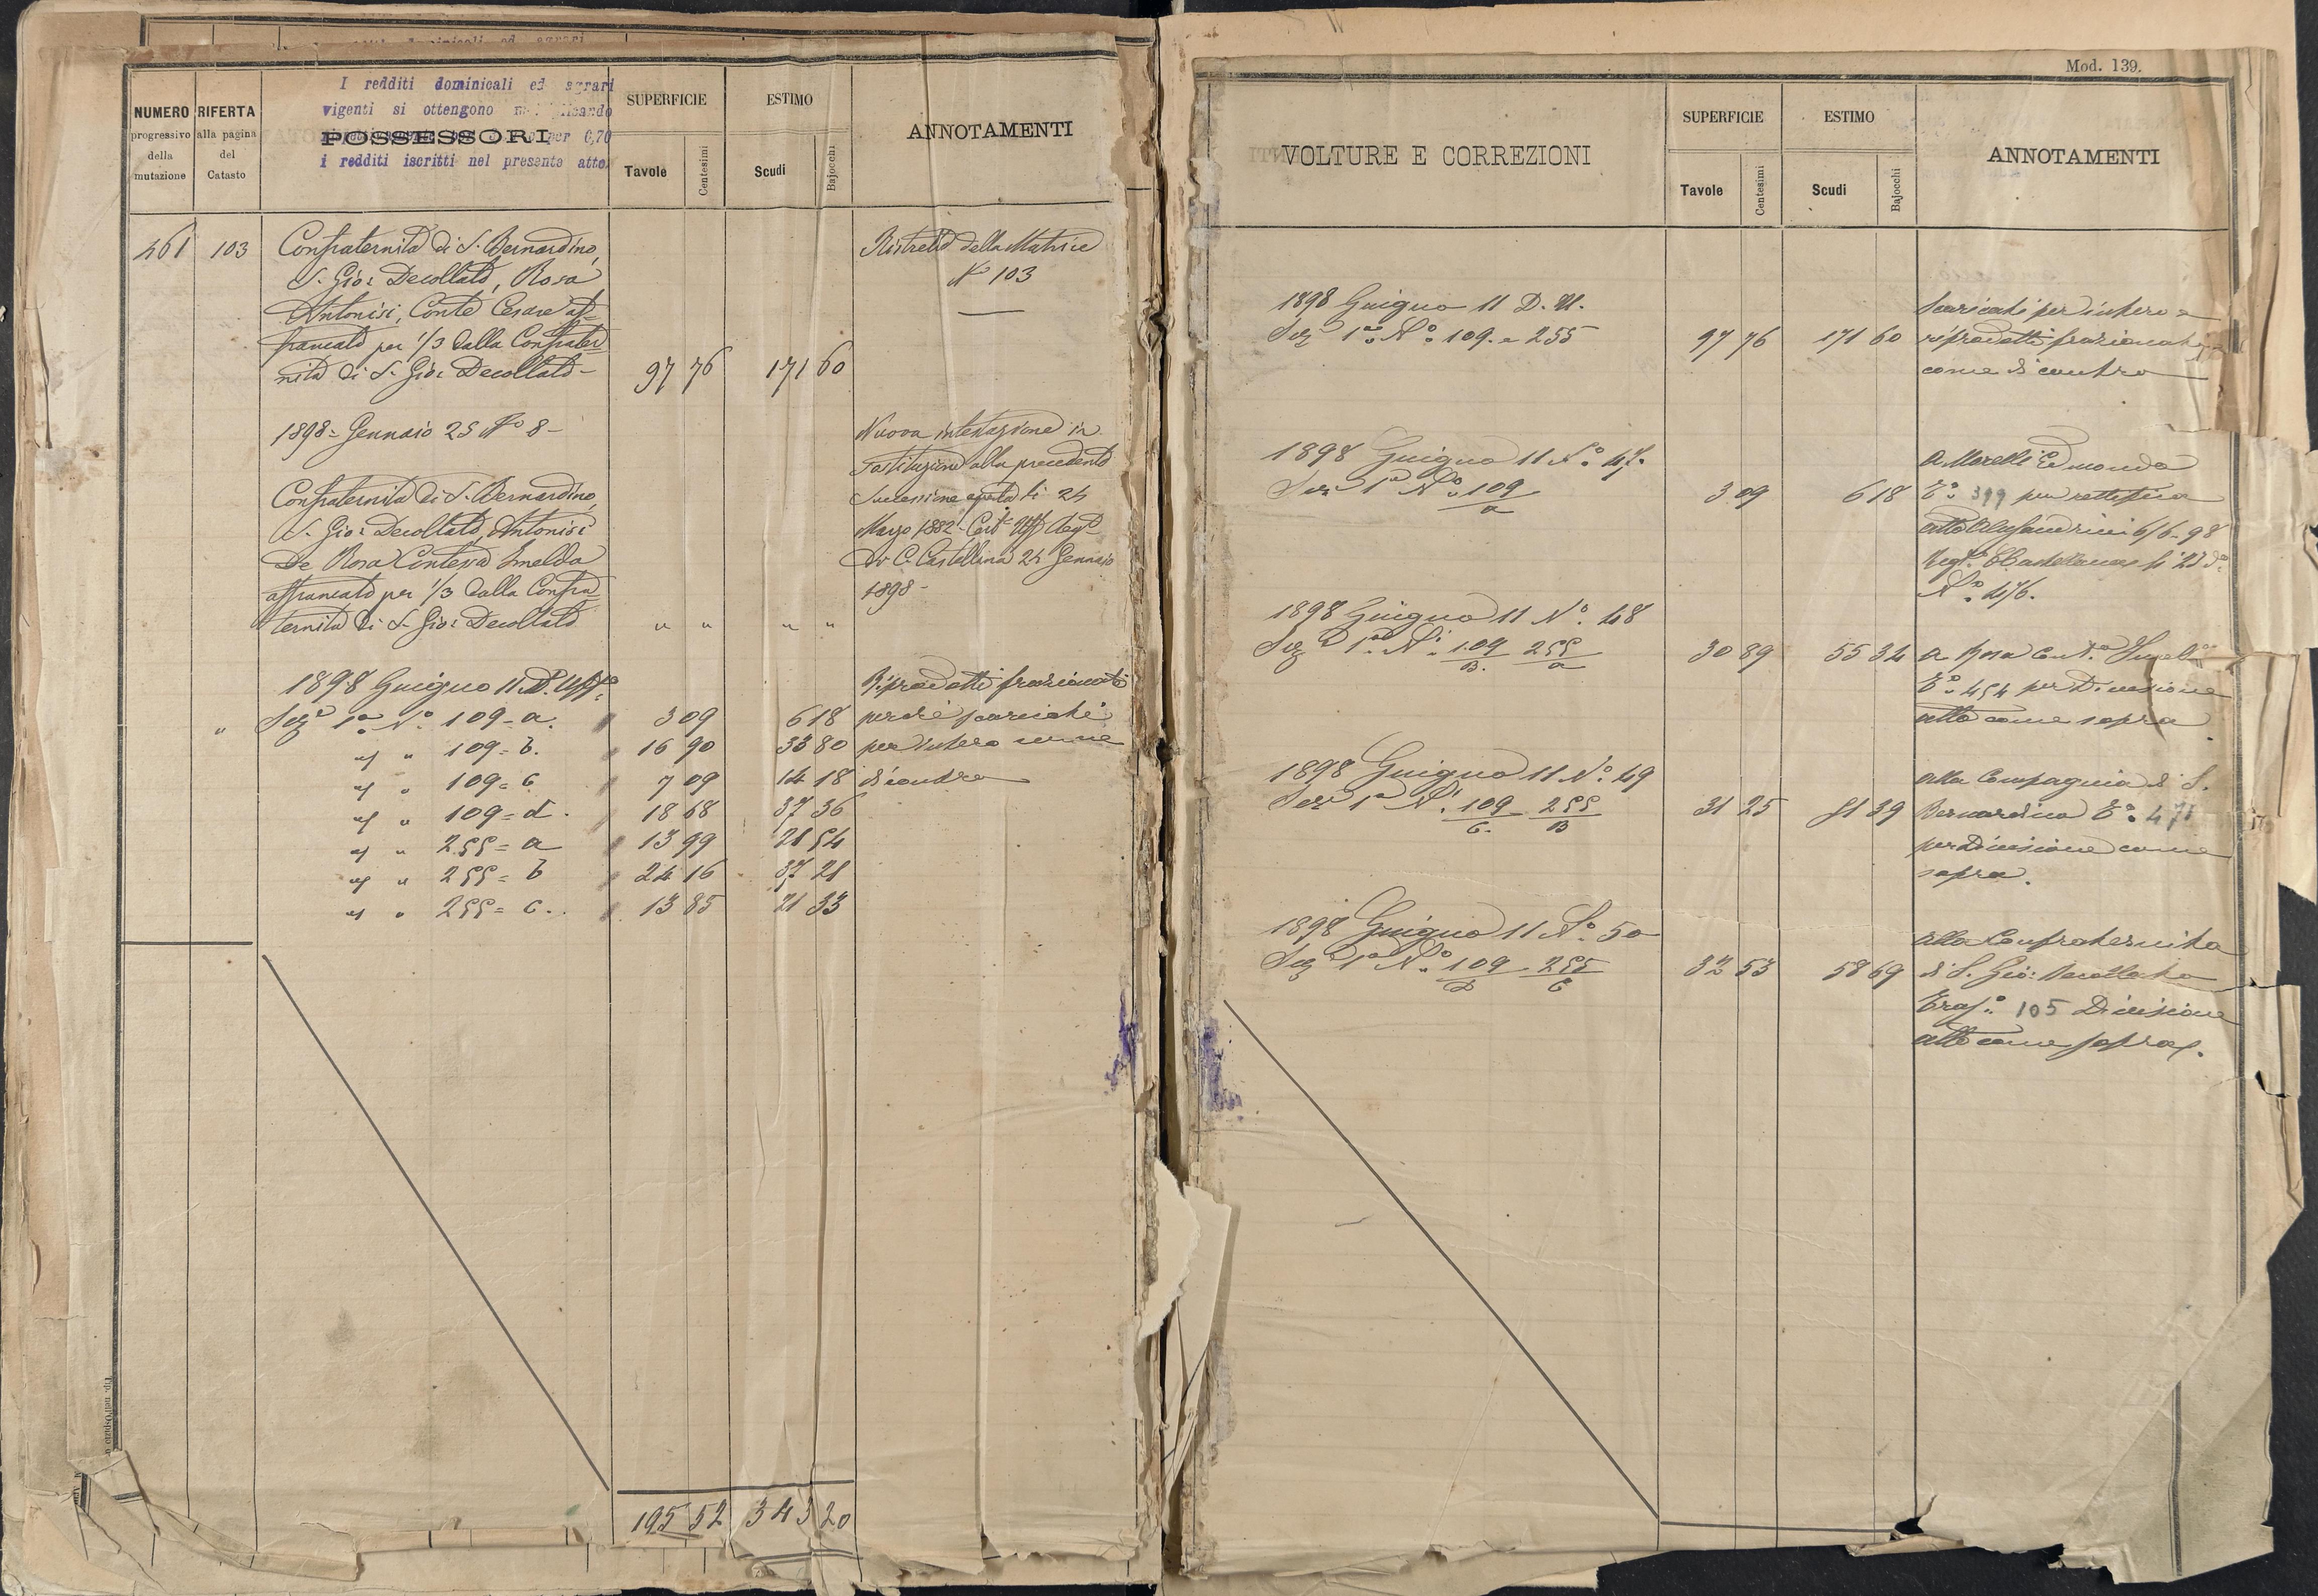 I redditi dominicali ed agrari
vigenti si ottengono
POSSESSORI
per 6,70
i redditi iscritti nel presente atto.
NUMERO
progressivo
della
mutazione
RIFERTA
alla pagina
del
Catasto
SUPERFICIE
Tavole
Centesimi
ESTIMO
Scudi
Bajocchi
ANNOTAMENTI
461 103 Confraternita di S. Bernardino,
S. Gio: Decollato, Rosa
Antonisi, Conte Cesare af=
francato per 1/3 dalla Confrater
nita di S. Gio: Decollato - 97 76 171 60
Ristretto della Matrice
N° 103
1898 = Gennaio 25 N° 8 -
Confraternita di S. Bernardino,
S. Gio: Decollato, Antonisi
De Rosa Contessa Imelda
affrancato per 1/3 dalla Confra=
ternita di S. Gio: Decollato " " " "
Nuova intestazione in
sostituzione alla precedente
Successione aperta li 24
Marzo 1882 - Cert° Uff Reg°
C. Castellana 24 Gennaio
1898 -
1898 Guigno 11 D. Uff°
" Sez 1a N° 109 = a. 3 09 6 18
" " 109 = b. 16 90 33 80
" " 109 = c 7 09 14 18
" " 109 = d. 18 68 37 36
" " 255 = a 13 99 21 54
" " 255 = b 24 16 37 21
" " 255 = c. 13 85 21 33
Riprodotti frazionati
perchè scaricati
per intero come
di contro
195 52 343 20
Mod. 139.
VOLTURE E CORREZIONI
SUPERFICIE
Tavole
Centesimi
ESTIMO
Scudi
Bajocchi
ANNOTAMENTI
1898 Guigno 11 D. U.
Sez 1a N° 109 e 255 97 76 171 60
Scaricati per intero e
riprodotti frazionati
come di contro
1898 Guigno 11 N° 47.
Sez 1a N° 109/a 3 09 6 18
A Morelli Edmondo
T° 399 per rettifica
atto Alessandrini 6/6-98
Reg° Castellana li
N° 476.
1898 Guigno 11 N° 48
Sez 1a N° 109/B. 255/a 30 89 55 34
a Rosa Cont.a
T° 454 per Divisione
atto come sopra.
1898 Guigno 11 N° 49
Sez 1a N° 109/C. 255/B 31 25 51 39
Alla Compagnia di S.
Bernardino T° 471
per Divisione come
sopra.
1898 Guigno 11 N° 50
Sez 1a N° 109/D 255/C 32 53 58 69
Alla Confraternita
di S. Gio: Decollato
Tras° 105 Divisione
atto come sopra.